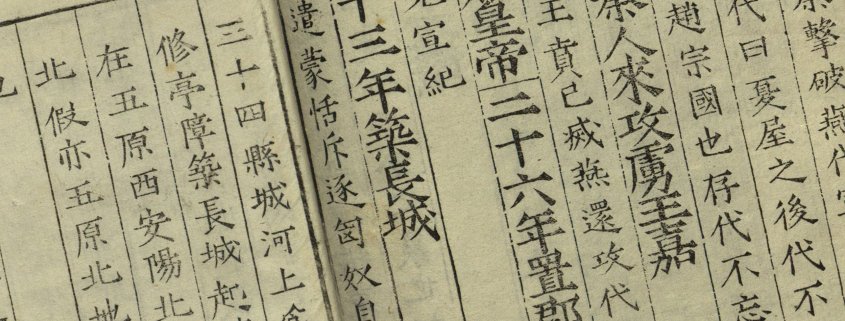 擊破燕代
代曰憂屋之後代不
趙宗國也存代不忘
秦人來攻虜王嘉
王賁已滅燕還攻代
皇帝二十六年置郡
宣紀
十三年築長城
遣蒙恬斥逐匈奴自
三十四縣城河上
修亭障築長城起
在五原西安陽北
北假亦五原北地